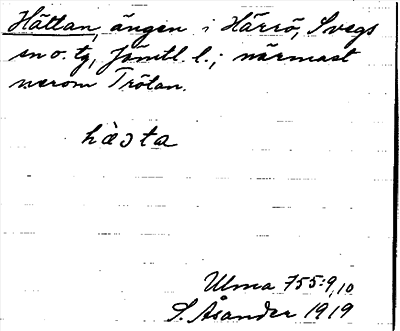 Hättan, ängen i Härrö, Svegs
sn o. tg, Jämtl. l.; närmast
nerom Trötan.
hàsta
Ulma 755:9,10
S. Åsander 1919